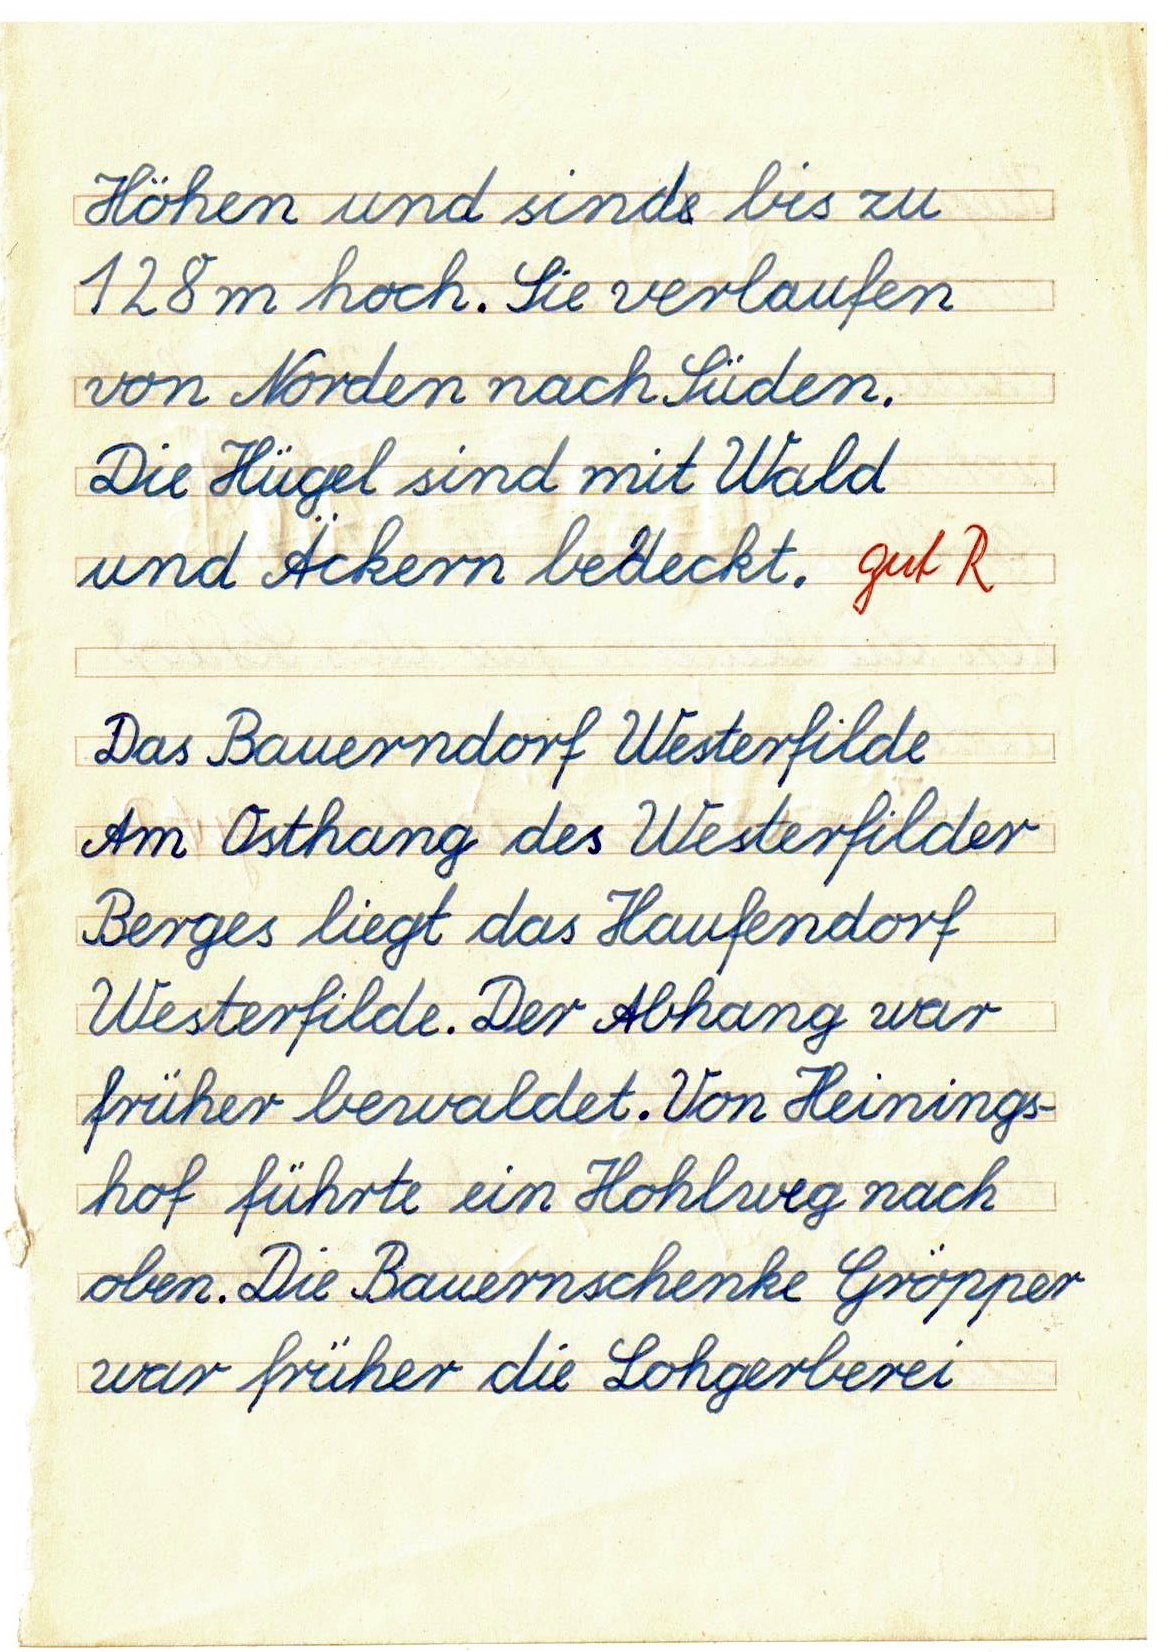 Höhen und sind bis zu
128m hoch. Sie verlaufen
von Norden nach Süden.
Die Hügel sind mit Wald
und Äckern bedeckt. gut R
Das Bauerndorf Westerfilde
Am Osthang des Westerfilder
Berges liegt das Haufendorf
Westerfilde. Der Abhang war
früher bewaldet. Von Heinings-
hof führte ein Hohlweg nach
oben. Die Bauernschenke Gröpper
war früher die Lohgerberei